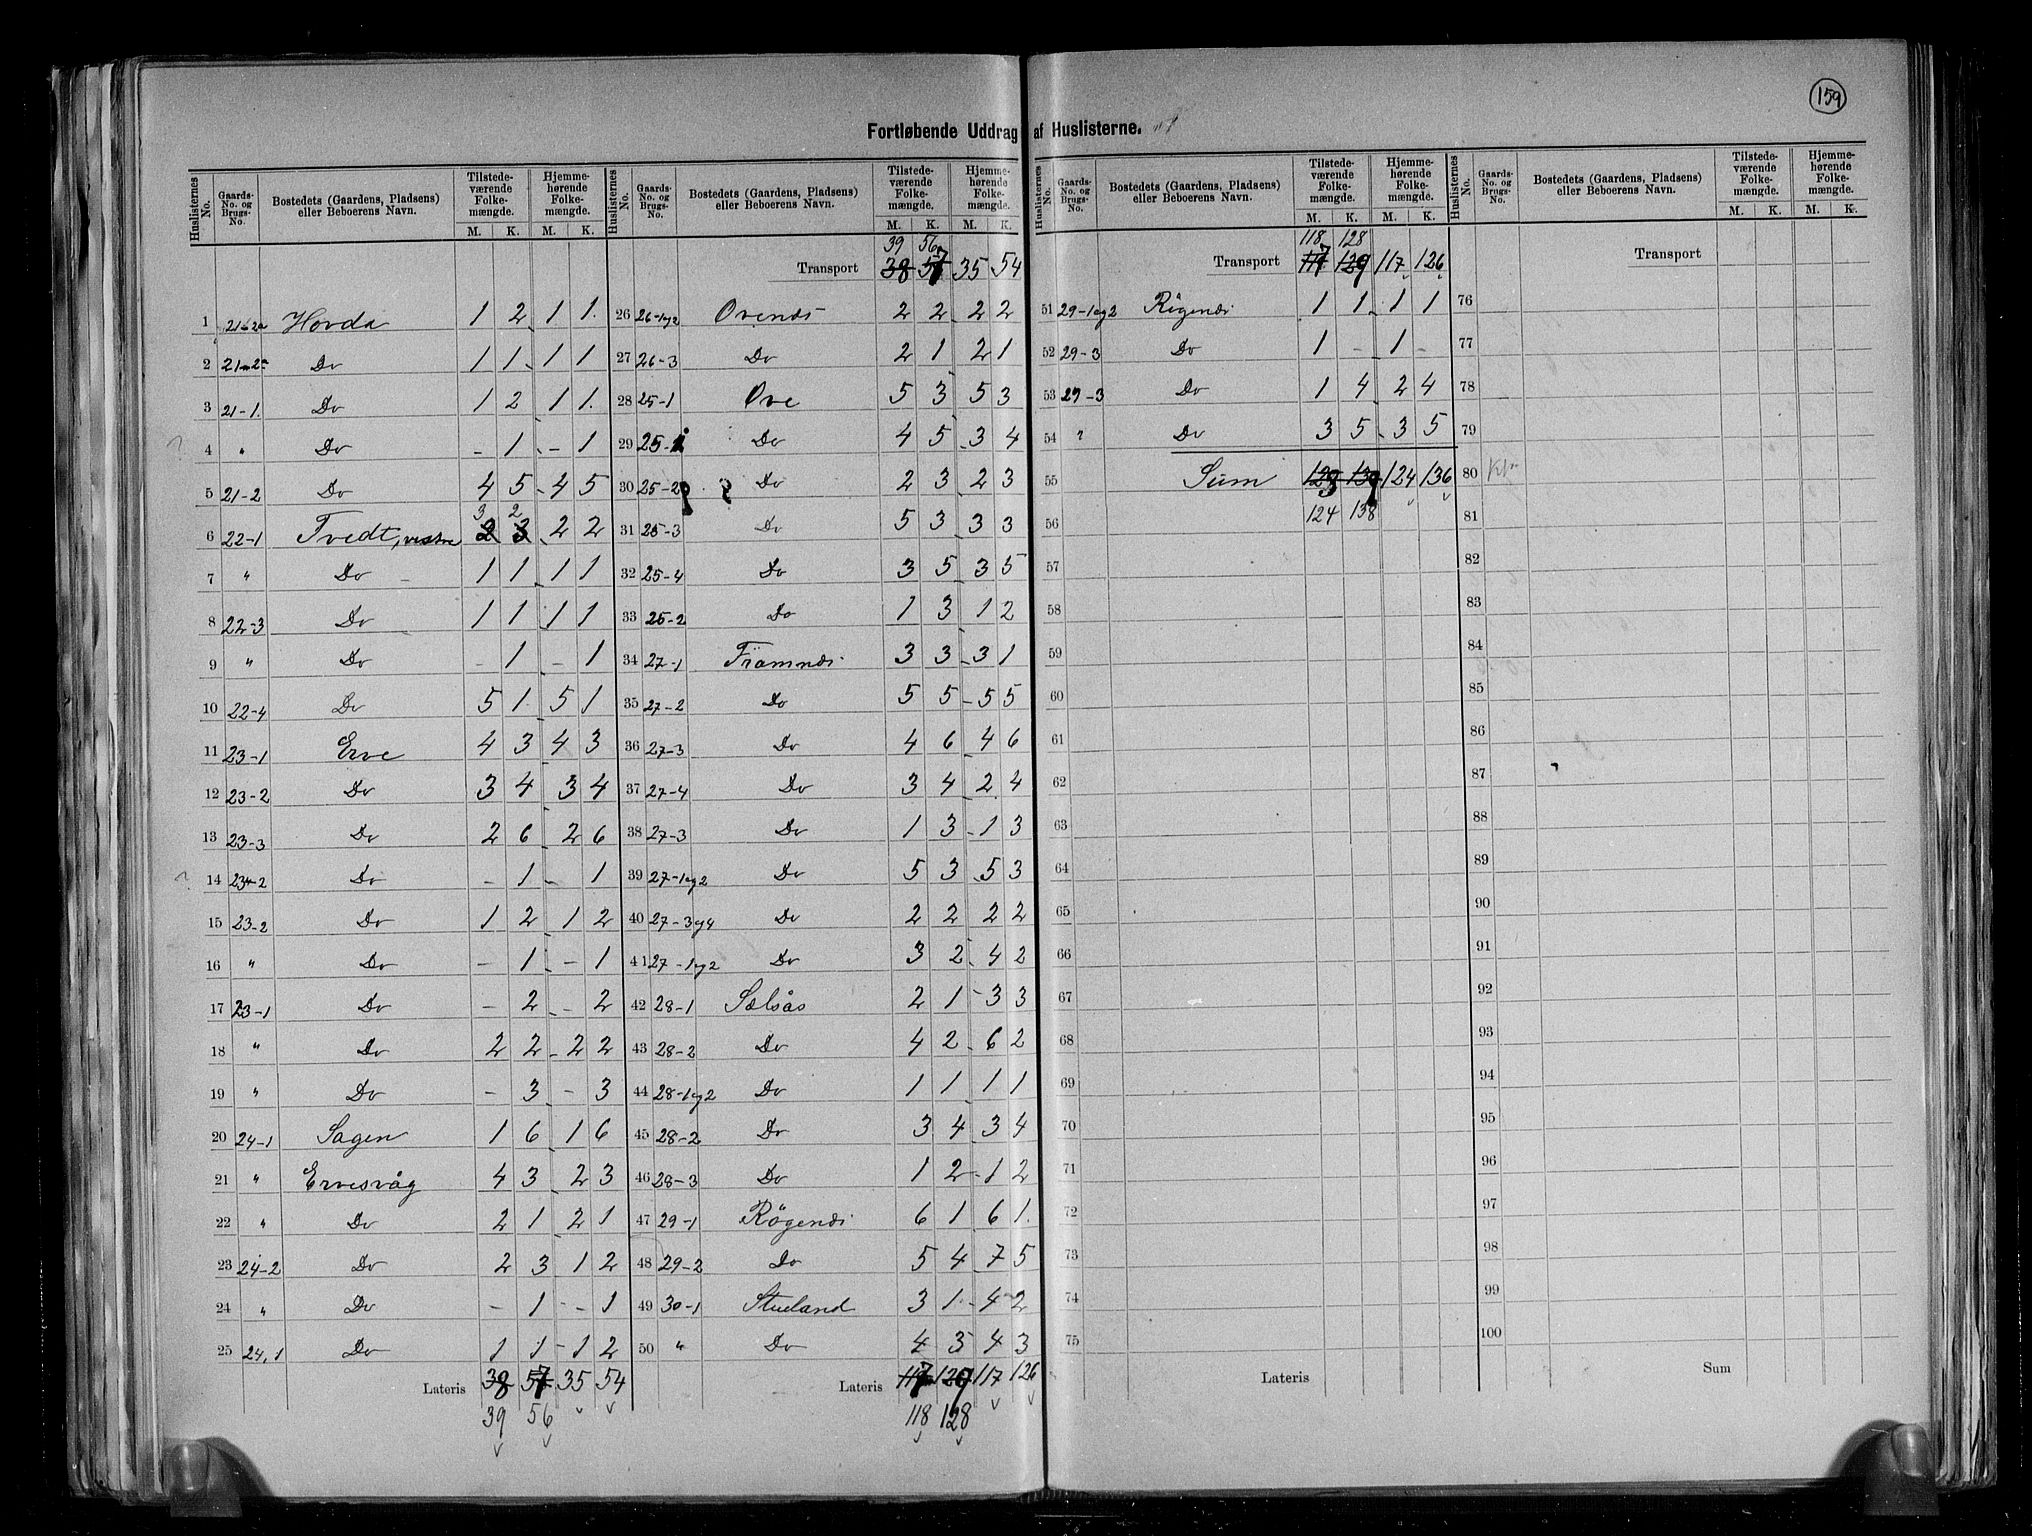 159
Fortløbende Uddrag af Huslisterne.
Huslisternes No. Gaards-No. og Brugs-No. Bostedets (Gaardens, Pladsens) eller Beboerens Navn. Tilstedeværende Folkemængde. M. K. Hjemmehørende Folkemængde. M. K.
1 Hovda 1 2 1 1
2 Do 1 1 1 1
3 21-1. Do 1 2 1 1
4 " Do - 1 - 1
5 21-2 Do 4 5 4 5
6 22-1 Tvedt, vestre 3 2 2 2
7 " Do 1 1 1 1
8 22-3 Do 1 1 1 1
9 " Do - 1 - 1
10 22-4 Do 5 1 5 1
11 23-1 Erve 4 3 4 3
12 23-2 Do 3 4 3 4
13 23-3 Do 2 6 2 6
14 23-2 Do - 1 - 1
15 23-2 Do 1 2 1 2
16 " Do - 1 - 1
17 23-1 Do - 2 - 2
18 " Do 2 2 2 2
19 " Do - 3 - 3
20 24-1 Sagen 1 6 1 6
21 " Ervesvåg 4 3 2 3
22 " Do 2 1 2 1
23 24-2 Do 2 3 1 2
24 " Do - 1 - 1
25 24,1 Do 1 1 1 2
Lateris 38 57 35 54
39 56
Huslisternes No. Gaards-No. og Brugs-No. Bostedets (Gaardens, Pladsens) eller Beboerens Navn. Tilstedeværende Folkemængde. M. K. Hjemmehørende Folkemængde. M. K.
39 56
Transport 38 57 35 54
26 26-1og2 Ovenes 2 2 2 2
27 26-3 Do 2 1 2 1
28 25-1 Ove 5 3 5 3
29 25-1 Do 4 5 3 4
30 25-2 Do 2 3 2 3
31 25-3 Do 5 3 3 3
32 25-4 Do 3 5 3 5
33 25-2 Do 1 3 1 2
34 27-1 Framnes 3 3 3 1
35 27-2 Do 5 5 5 5
36 27-3 Do 4 6 4 6
37 27-4 Do 3 4 2 4
38 27-3 Do 1 3 1 3
39 27-1og2 Do 5 3 5 3
40 27-3og4 Do 2 2 2 2
41 27-1og2 Do 3 2 4 2
42 28-1 Sælsås 2 1 3 3
43 28-2 Do 4 2 6 2
44 28-1og2 Do 1 1 1 1
45 28-2 Do 3 4 3 4
46 28-3 Do 1 2 1 2
47 29-1 Røgenes 6 1 6 1.
48 29-2 Do 5 4 7 5
49 30-1 Stueland 3 1 4 2
50 " Do 4 3 4 3
Lateris 117 129 117 126
118 128
Huslisternes No. Gaards-No. og Brugs-No. Bostedets (Gaardens, Pladsens) eller Beboerens Navn. Tilstedeværende Folkemængde. M. K. Hjemmehørende Folkemængde. M. K.
118 128
Transport 117 129 117 126
51 29-1og2 Røgenes 1 1 1 1
52 29-3 Do 1 - 1 -
53 29-3 Do 1 4 2 4
54 Do 3 5 3 5
55 Sum 123 139 124 136
56 124 138
57
58
59
60
61
62
63
64
65
66
67
68
69
70
71
72
73
74
75
Lateris
Huslisternes No. Gaards-No. og Brugs-No. Bostedets (Gaardens, Pladsens) eller Beboerens Navn. Tilstedeværende Folkemængde. M. K. Hjemmehørende Folkemængde. M. K.
Transport
76
77
78
79
80
81
82
83
84
85
86
87
88
89
90
91
92
93
94
95
96
97
98
99
100
Sum